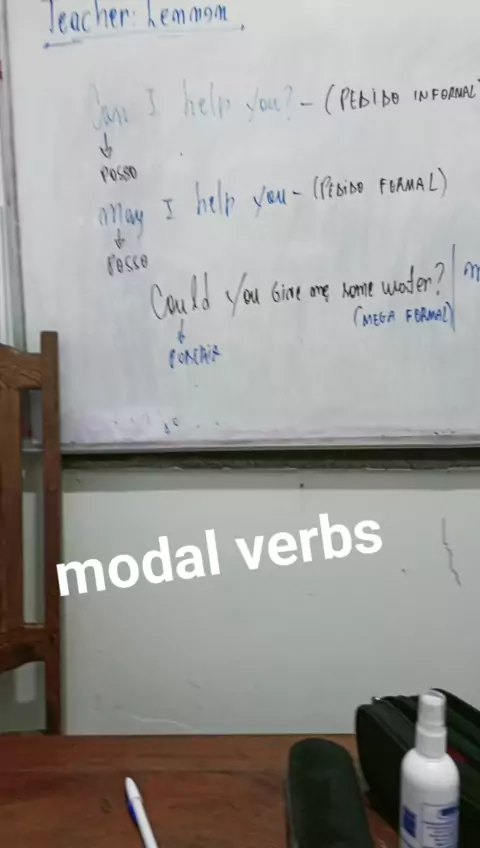 Teacher: Lennon
Can I help you? - (PEDIDO INFORMAL
↓
POSSO
May I help you - (PEDIDO FORMAL)
↓
POSSO
Could you Give me some water?
(MEGA FORMAL)
modal verbs